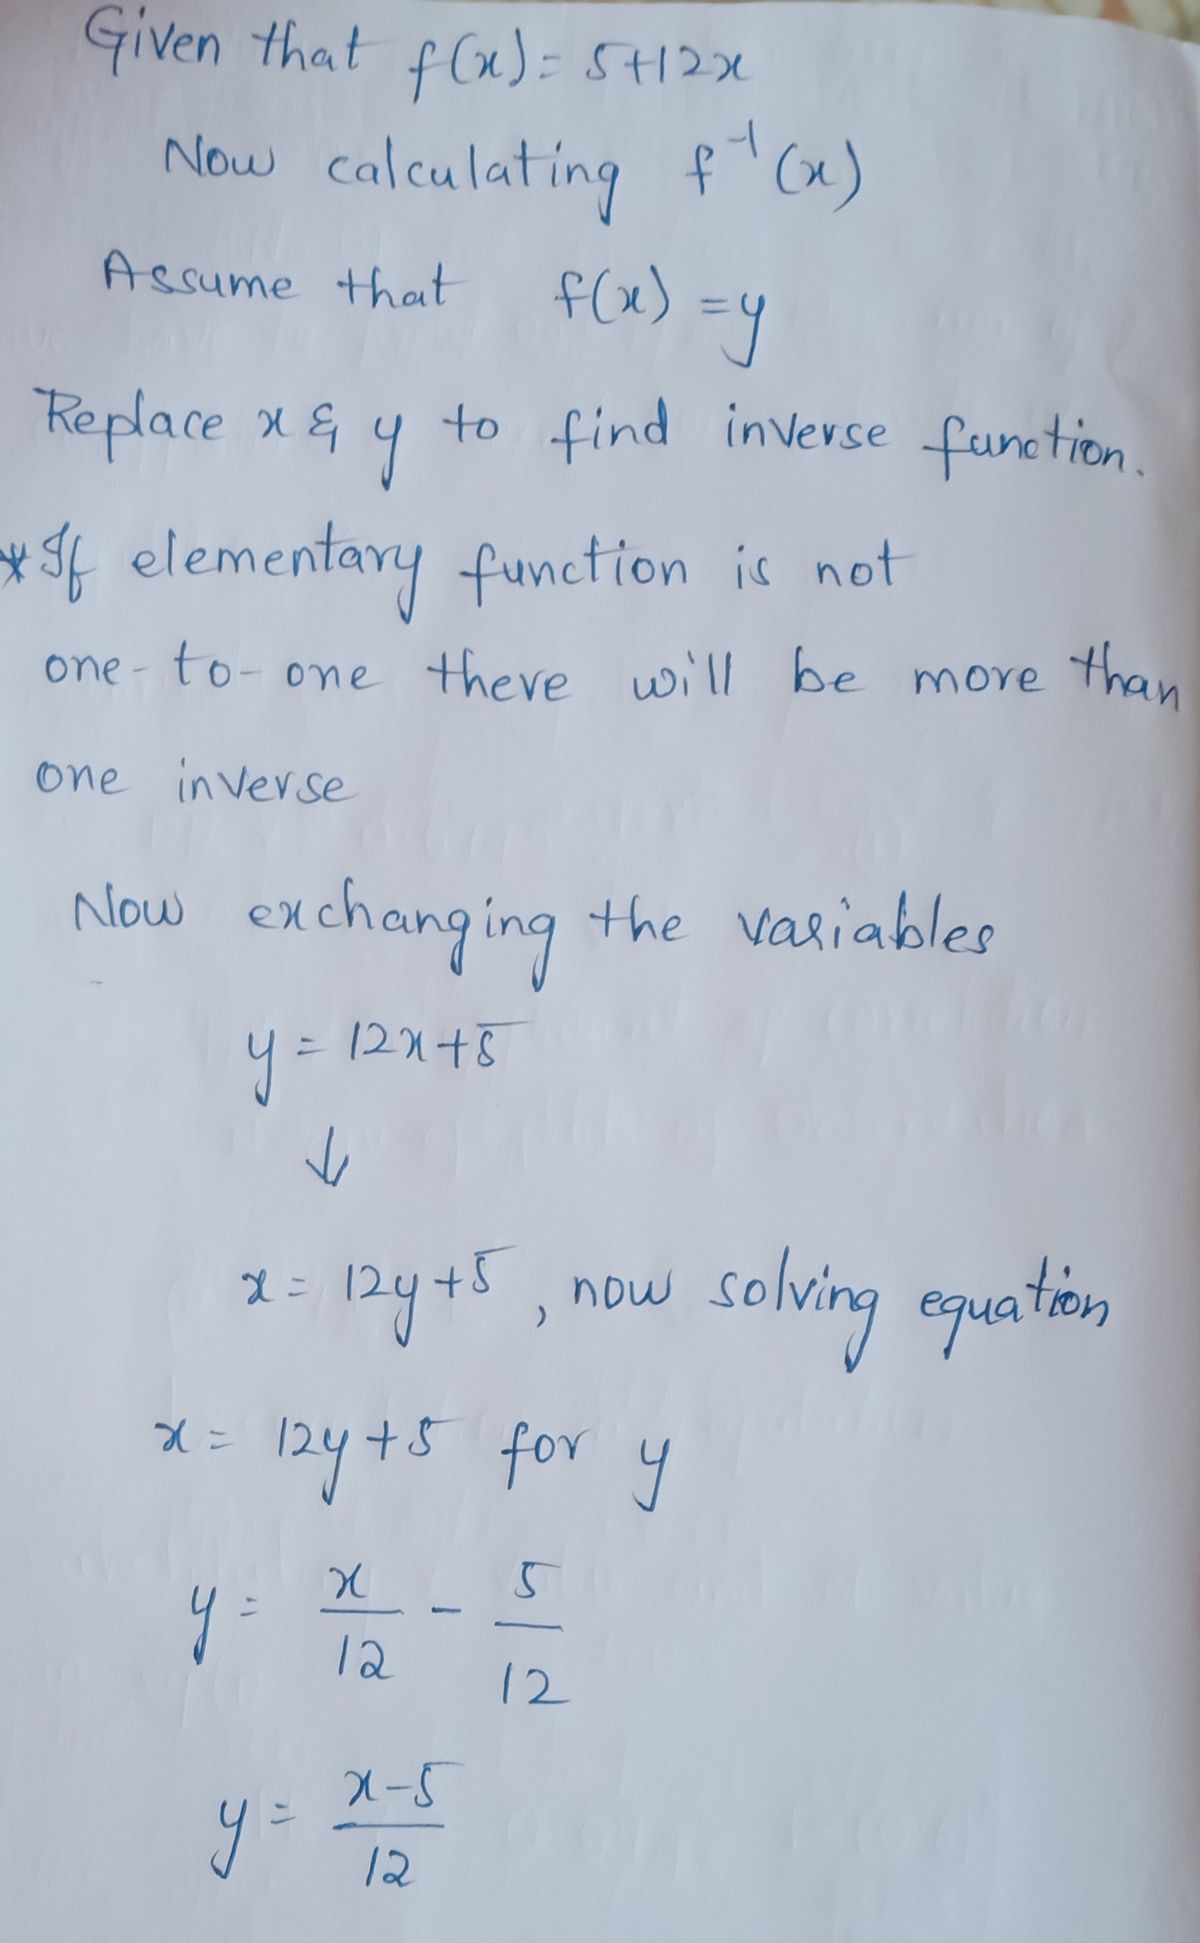 Given that f(x) = 5+12x
Now calculating f⁻¹(x)
Assume that f(x) = y
Replace x & y to find inverse function.
* If elementary function is not
one-to-one there will be more than
one inverse
Now exchanging the variables
y = 12x+5
↓
x = 12y+5, now solving equation
x = 12y+5 for y
y = x/12 - 5/12
y = x-5/12